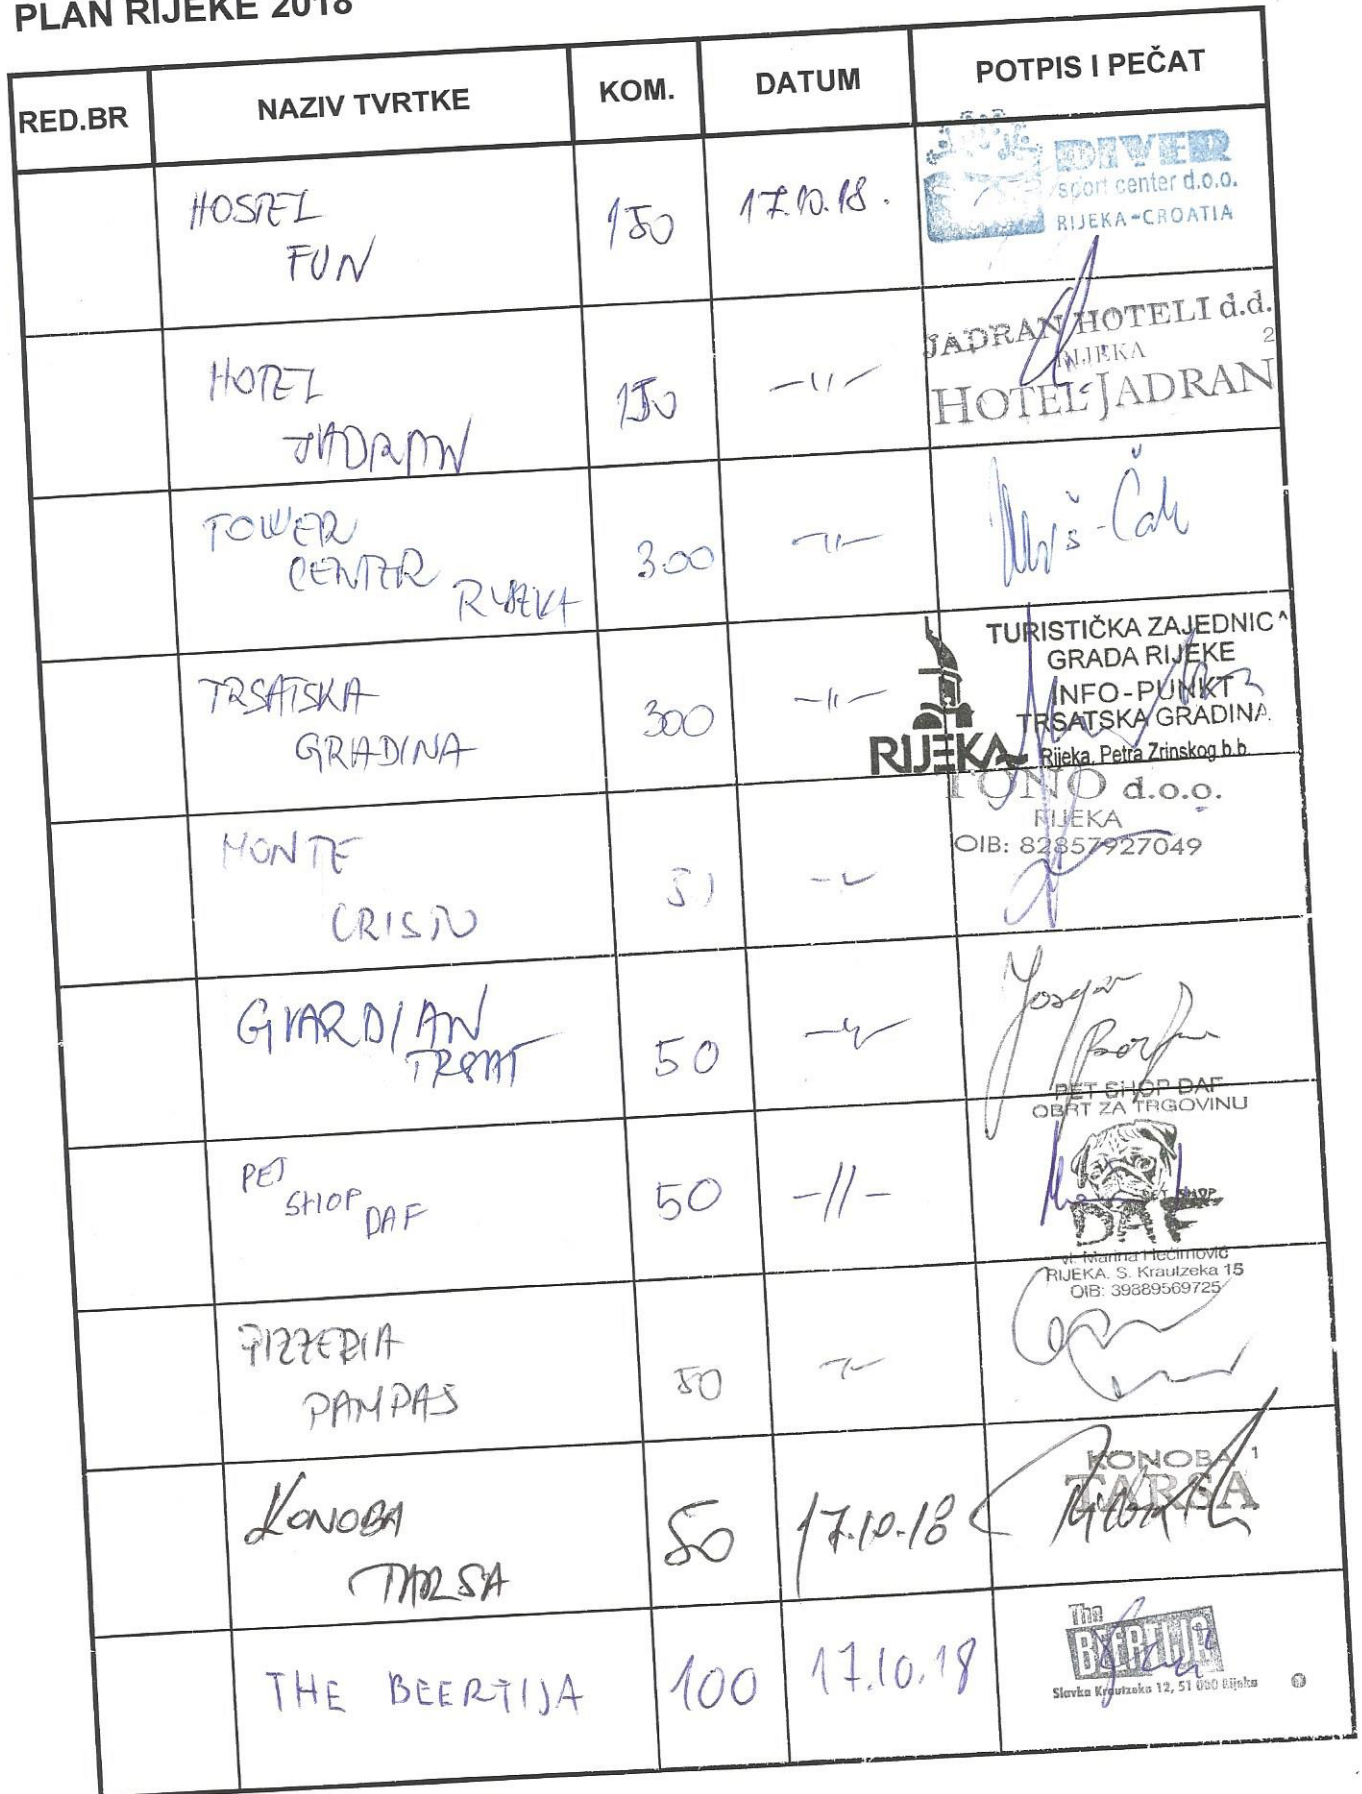 PLAN RIJEKE 2018
RED.BR NAZIV TVRTKE KOM. DATUM POTPIS I PEČAT
HOSTEL
FUN
150
17.10.18.
DIVER
sport center d.o.o.
RIJEKA-CROATIA
HOTEL
JADRAN
150
-11-
JADRAN HOTELI d.d.
RIJEKA 2
HOTEL JADRAN
TOWER
CENTER
RIJEKA
300
-11-
TRSATSKA
GRADINA
300
-11-
TURISTIČKA ZAJEDNIC
GRADA RIJEKE
INFO-PUNKT
TRSATSKA GRADINA
Rijeka, Petra Zrinskog b.b.
RIJEKA
MONTE
CRISTO
TONO d.o.o.
RIJEKA
OIB: 82857927049
GVARDIAN
TRSAT
50
PET
SHOP
DAF
50
-//-
PET SHOP DAF
OBRT ZA TRGOVINU
PET SHOP
DAF
vl. Marina Hećimović
RIJEKA, S. Krautzeka 15
OIB: 39889569725
PIZZERIA
PAMPAS
50
KONOBA
TARSA
50
17.10.18
KONOBA 1
TARSA
THE BEERTIJA
100
17.10.18
The
BEERTIJA
Slavka Krautzeka 12, 51 000 Rijeka